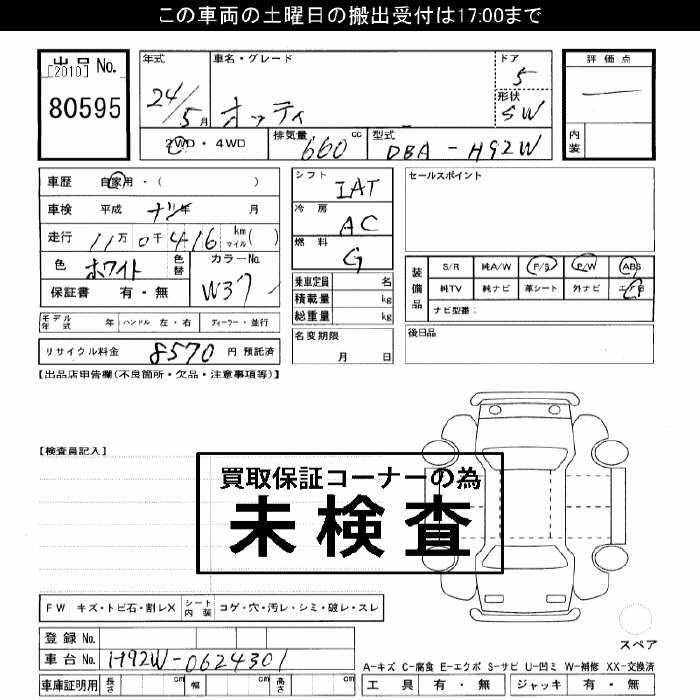 この車両の土曜日の搬出受付は17:00まで
出品 No.
[2010]
80595
年式
24/5月
車名・グレード
オッティ
ドア
5
形状
SW
評価点
内装
2WD・4WD
排気量
660 cc
型式
DBA-H92W
車歴 自家用・( )
車検 平成 ナシ年 月
走行 11万0千416 km マイル ( )
色 ホワイト 色替
カラーNo.
W37
保証書 有・無
モデル年式 年 ハンドル 左・右 ディーラー・並行
リサイクル料金 8570 円 預託済
シフト
IAT
冷房
AC
燃料
G
乗車定員 名
積載量 kg
総重量 kg
名変期限
月 日
セールスポイント
装備品
S/R 純A/W P/S P/W ABS
純TV 純ナビ 革シート 外ナビ
ナビ型番:
後日品
【出品店申告欄(不良箇所・欠品・注意事項等)】
【検査員記入】
買取保証コーナーの為
未検査
FW キズ・トビ石・割レX シート内装 コゲ・穴・汚レ・シミ・破レ・スレ
スペア
登録 No.
車台 No. H92W-0624301
車庫証明用 長さ cm 幅 cm 高さ cm
A-キズ C-腐食 E-エクボ S-サビ U-凹ミ W-補修 XX-交換済
工具 有・無 ジャッキ 有・無